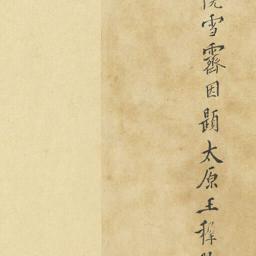 雪霽因題太原王穉